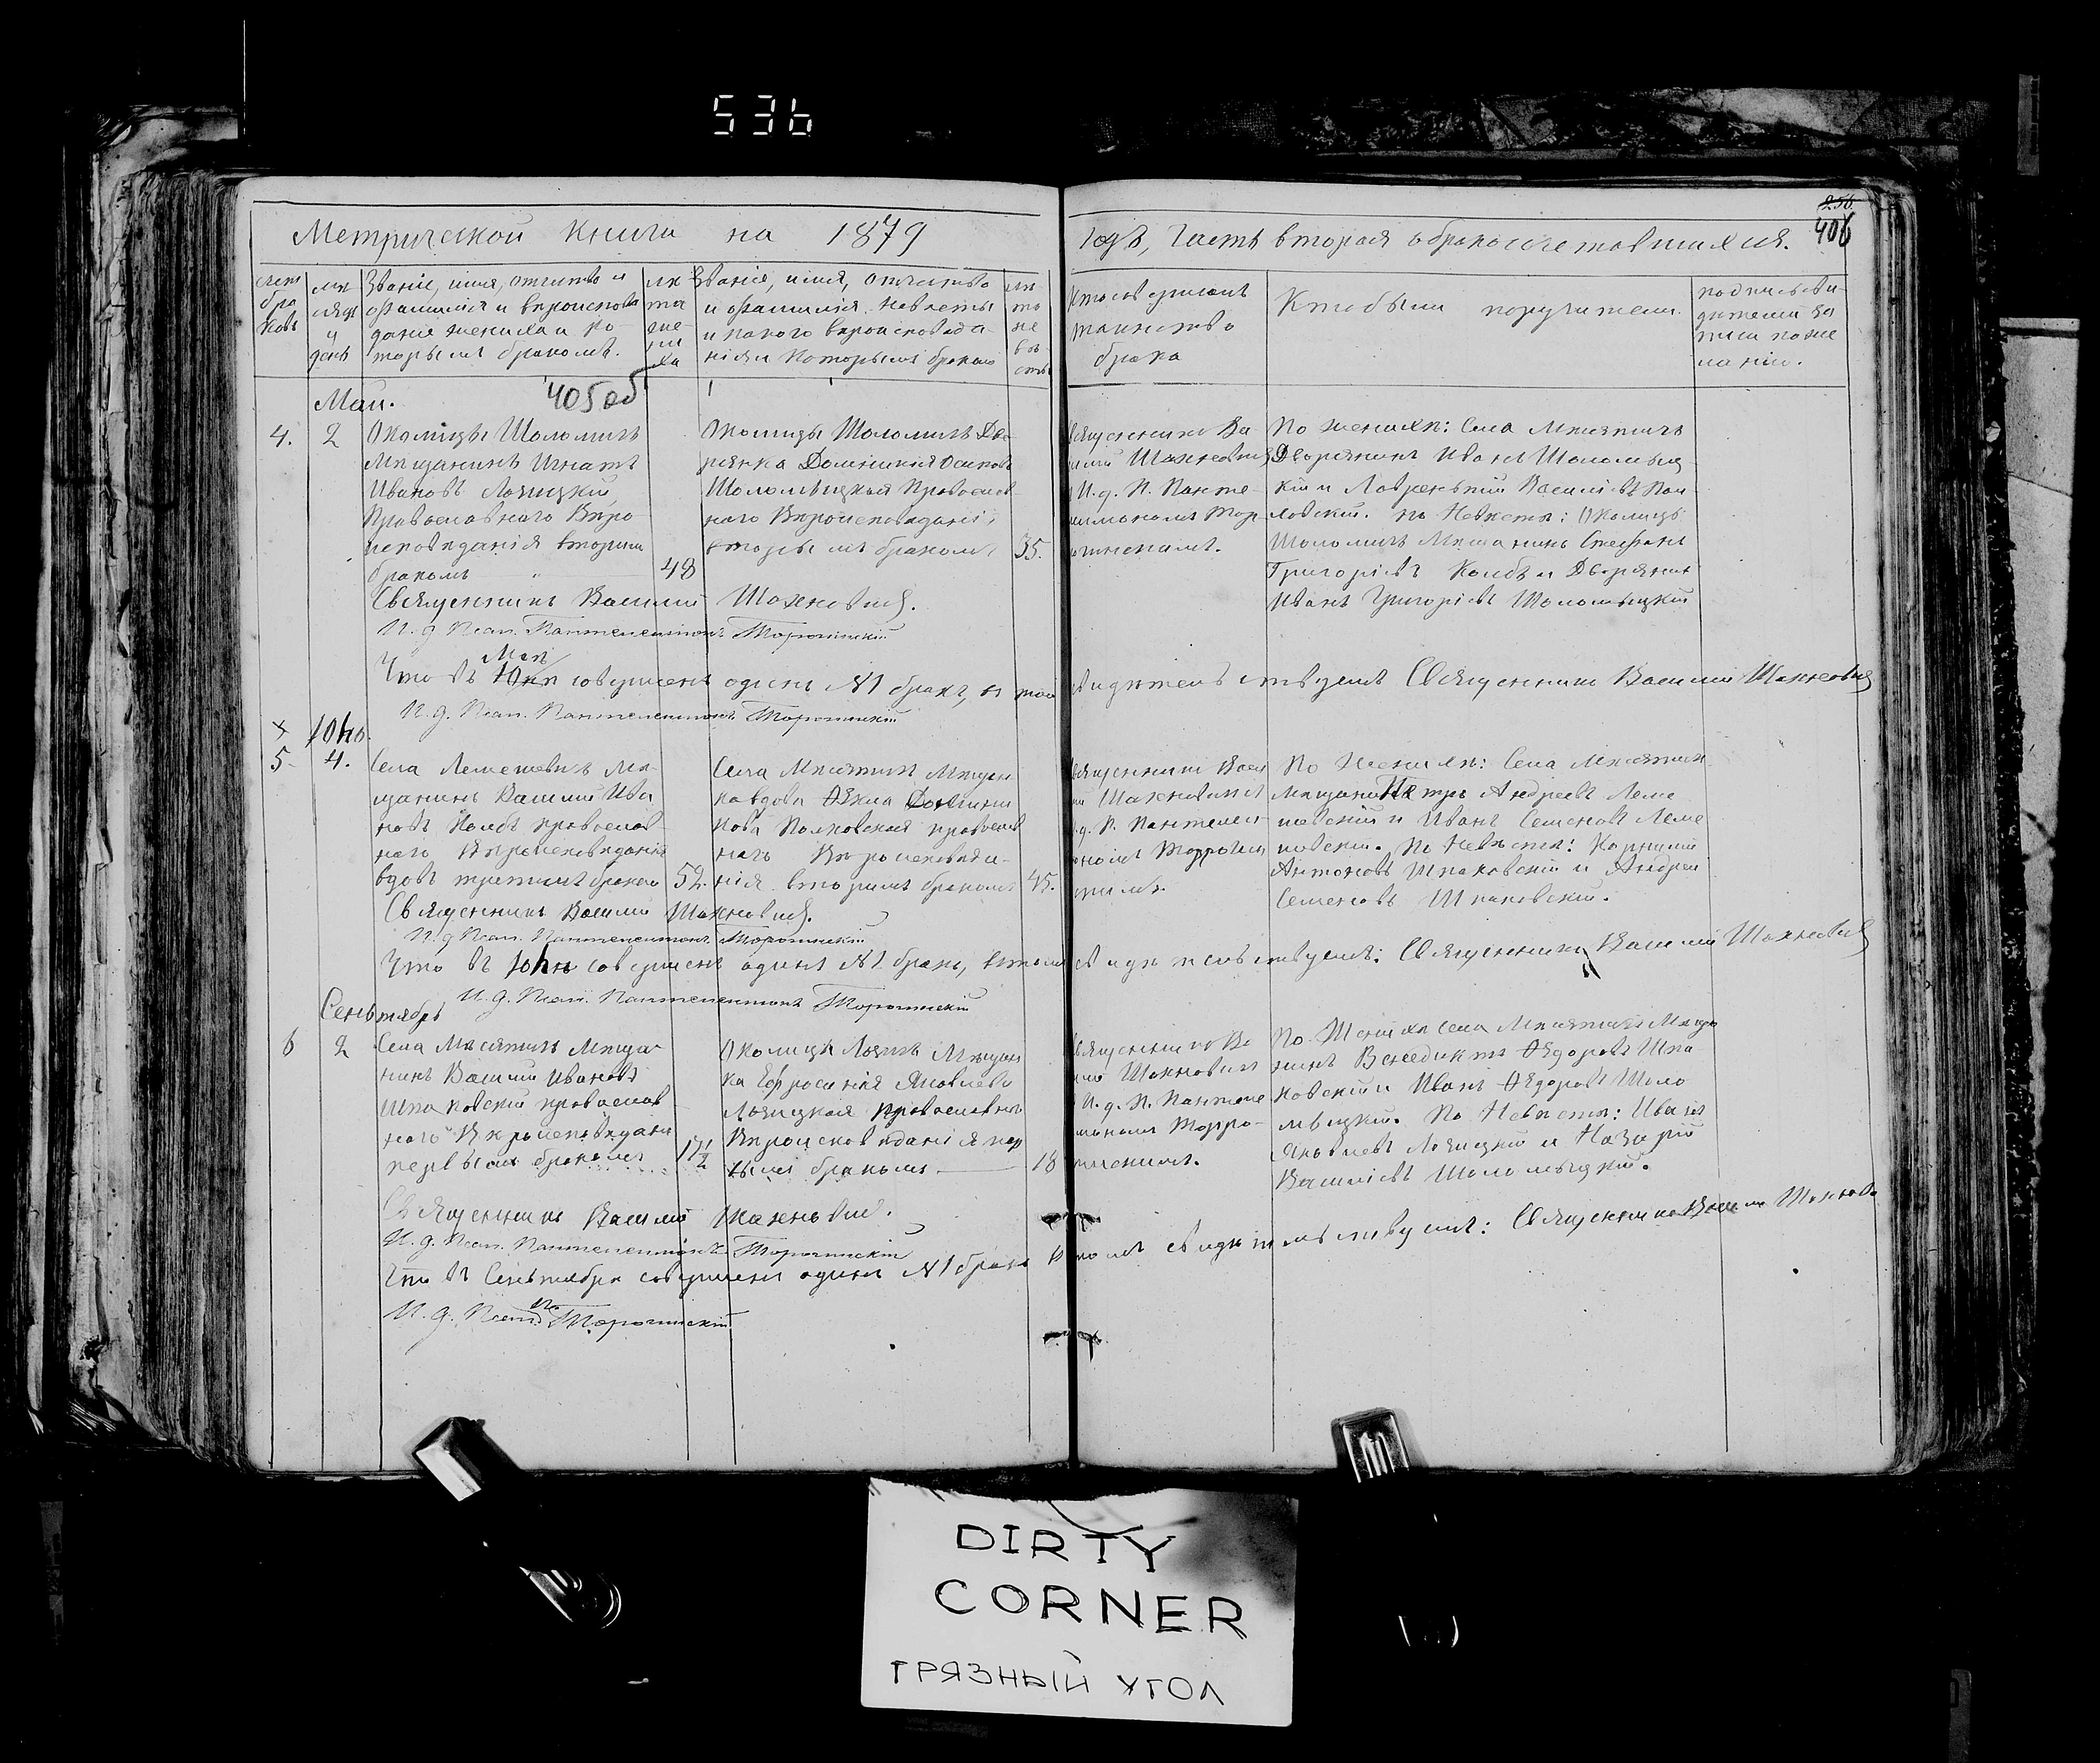 536
Метрической Книги на 1879
годъ, Часть вторая о бракосочетавшихся.
256.
406
счетъ браковъ
мѣсяцъ и день
Званіе, имя, отчество и
фамилія и вѣроисповѣ
даніе жениха и ко-
торымъ бракомъ.
лѣта жениха
Званіе, имя, отчество
и фамилія невѣсты
и какого вѣроисповѣда-
нія и которымъ бракомъ
лѣто невѣсты
Кто совершалъ
таинство
брака
Кто были поручители
подпись сви-
дѣтелей за
писи по же
ланію.
405 об
Май.
4. 2
Околицы Шоломичъ
Мѣщанинъ Игнатъ
Ивановъ Лозицкій,
Православнаго Вѣро
исповѣданія вторымъ
бракомъ
48
Околицы Шоломичъ Дво
рянка Домникія Осипова
Шоломицкая Православ
наго Вѣроисповѣданія
вторымъ бракомъ
35.
Священникъ Ва
силій Шахновичъ
И. д. П. Панте-
леимономъ Тор-
По женихѣ: Села Мнсятичъ
Дворянинъ Иванъ Шоломыц
кій и Лаврентій Василіевъ Пав
ловскій. По Невѣстѣ: Околицы
Шоломичъ Мѣщанинъ Стефанъ
Григоріевъ Колбъ и Дворянинъ
Иванъ Григоріевъ Шоломыцкій
Священникъ Василій Шахновичъ.
И. д. Псал. Пантелеимонъ Торочинскій
Маѣ
Что въ Юнѣ совершенъ одинъ №1 бракъ, въ томъ свидѣтельствуемъ Священникъ Василій Шахновичъ
И. д. Псал. Пантелеимонъ Торочинскій
х Юнь.
5. 4.
Села Лемешевичъ Мѣ-
щанинъ Василій Ива
новъ Колбъ православ-
наго Вѣроисповѣданія
вдовъ третимъ бракомъ
52.
Села Мнсятичъ Мѣщан
ка вдова Ѳекла Домини
кова Полховская православ
наго Вѣроисповѣда-
нія вторымъ бракомъ
45.
Священникъ Васи
лій Шахновичъ
И. д. П. Пантелеи
мономъ
По Женихѣ: Села Мнсятичъ
Мѣщани Петръ Андреевъ Леме
шевскій и Иванъ Семеновъ Леме
шевскій. По Невѣстѣ: Корнилій
Антоновъ Шпаковскій и Андрей
Семеновъ Шпаковскій.
Священникъ Василій Шахновичъ.
И. д. Псал. Пантелеимонъ Торочинскій
Что въ Юнѣ совершенъ одинъ №1 бракъ, въ томъ свидѣтельствуемъ: Священникъ Василій Шахновичъ
И. д. Псал. Пантелеимонъ Торочинскій
Сеньтябрь
6 2
Села Мнсятичъ Мѣща-
нинъ Василій Ивановъ
Шпаковскій православ
наго Вѣроисповѣданія
первымъ бракомъ
17½
Околицы Лозичъ Мѣщан
ка Ефросинія Яковлева
Лозицкая православнаго
Вѣроисповѣданія пер
вымъ бракомъ
18
Священникъ Ва
силій Шахновичъ
И. д. П. Пантеле
имономъ Торро-
По Женихѣ Села Мнсятичъ Мѣща
нинъ Венедиктъ Ѳедоровъ Шпа
ковскій и Иванъ Ѳедоровъ Шоло
мыцкій. По Невѣстѣ: Иванъ
Яковлевъ Лозицкій и Назарій
Василіевъ Шоломыцкій.
Священникъ Василій Шахновичъ.
И. д. Псал. Пантелеимонъ Торочинскій
Что въ Сеньтябрѣ совершенъ одинъ №1 бракъ въ томъ свидѣтельствуемъ: Священникъ Василій Шахнович
И. д. Псал. П. Торочинскій
DIRTY
CORNER
ГРЯЗНЫЙ УГОЛ